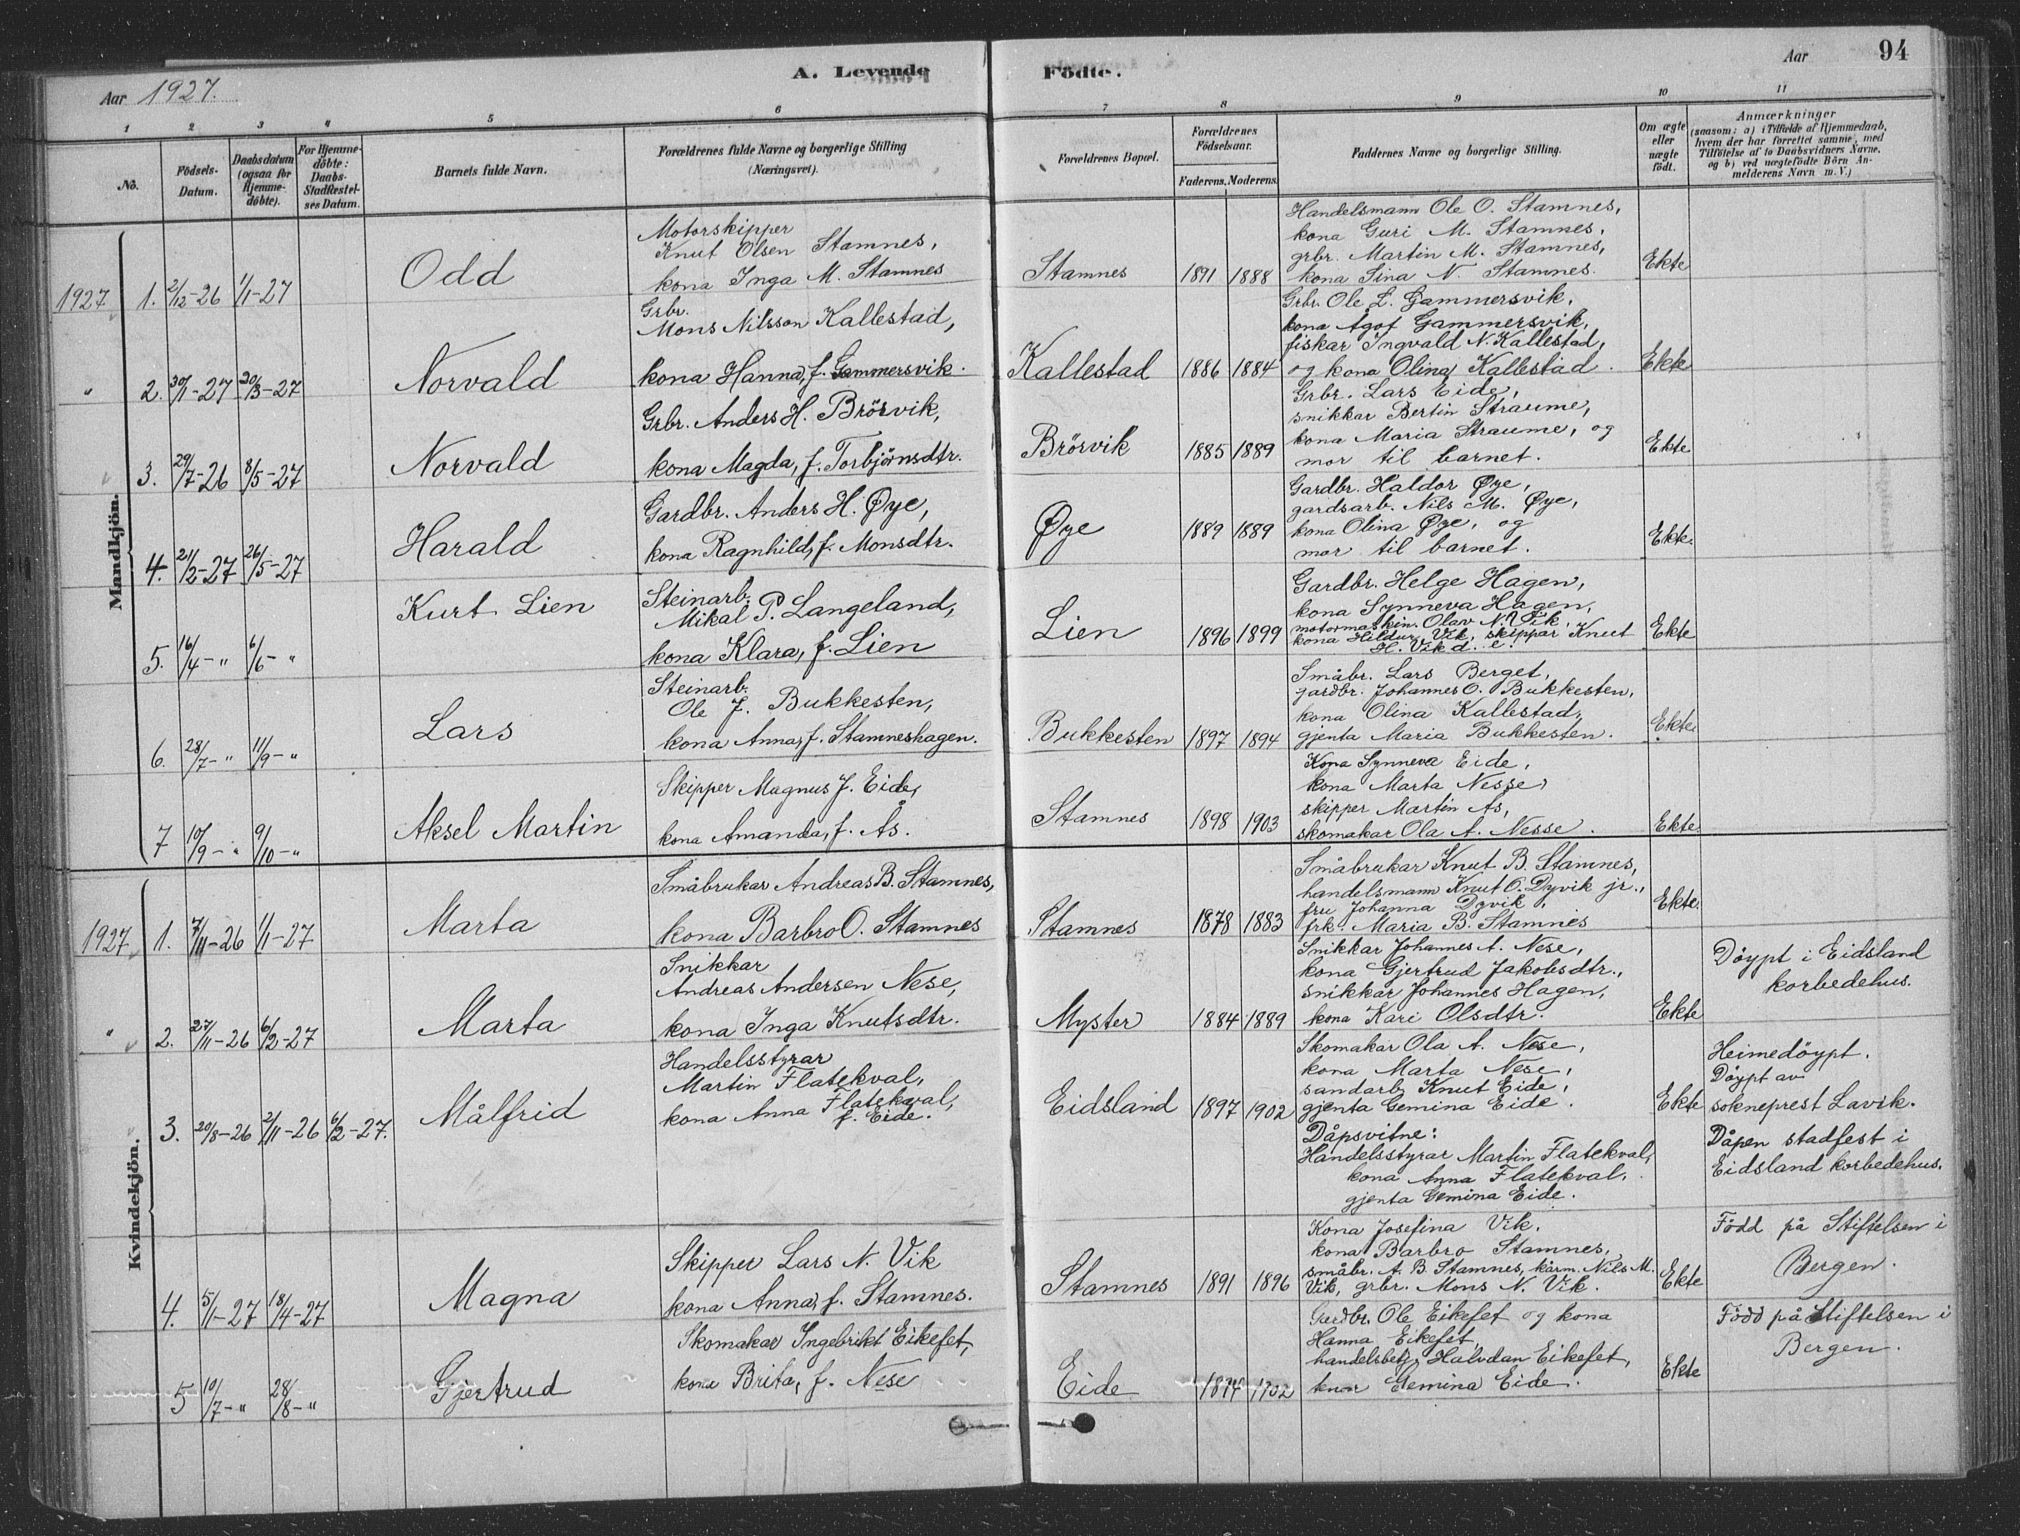 94
A. Levende Födte.
Aar 1927.
Aar
1 2 3 4 5 6 7 8 9 10 11
No.
Födsels-Datum.
Daabsdatum (ogsaa for Hjemme-döbte).
For Hjemme-döbte: Daabs-Stadfæstel-ses Datum.
Barnets fulde Navn.
Forældrenes fulde Navne og borgerlige Stilling (Næringsvei).
Forældrenes Bopæl.
Forældrenes Födselsaar.
Faderens. Moderens.
Faddernes Navne og borgerlige Stilling.
Om ægte eller uægte födt.
Anmærkninger
(saasom: a) i Tilfælde af Hjemmedaab, hvem der har forrettet samme, med Tilföielse af to Daabsvidners Navne, og b) ved uægtefödte Börn An-melderens Navn m. V.)
Mandkjön.
1927 1. 2/12-26 1/1-27
Odd
Motorskipper
Knut Olsen Stamnes,
kona Inga M. Stamnes
Stamnes 1891 1888
Handelsmann Ole O. Stamnes,
kona Guri M. Stamnes,
grbr. Martin M. Stamnes,
kona Sina N. Stamnes.
Ekte
" 2. 30/1-27 20/3-27
Norvald
Grbr.
Mons Nilsson Kallestad,
kona Hanna, f. Gammersvik.
Kallestad 1886 1884
Grbr. Ole L. Gammersvik,
kona Ågot Gammersvik,
fiskar Ingvald N. Kallestad,
og kona Olina Kallestad.
Ekte
3. 29/7-26 8/5-27
Norvald
Grbr. Anders H. Brörvik,
kona Magda, f. Torbjörnsdtr.
Brörvik 1885 1889
Grbr. Lars Eide,
snikkar Bertin Straume,
kona Maria Straume, og
mor til barnet.
Ekte
4. 21/2-27 26/5-27
Harald
Gardbr. Anders H. Øye,
kona Ragnhild, f. Monsdtr.
Øye 1889 1889
Gardbr. Haldor Øye,
gardsarb. Nils M. Øye,
kona Olina Øye, og
mor til barnet.
Ekte.
5. 16/4-" 6/6-"
Kurt Lien
Steinarb.
Mikal P. Langeland,
kona Klara, f. Lien
Lien 1896 1899
Gardbr. Helge Hagen,
kona Synneva Hagen,
motormaskin. Olav N. Vik,
kona Hildur Vik, skippar Knut
H. Vik d. e.
Ekte
6. 28/7-" 11/9-"
Lars
Steinarb.
Ole J. Bukkesten,
kona Anna, f. Stamneshagen.
Bukkesten 1897 1894
Småbr. Lars Berget,
gardbr. Johannes O. Bukkesten,
kona Olina Kallestad,
gjenta Maria Bukkesten.
Ekte
7 10/9-" 9/10-"
Aksel Martin
Skipper Magnus J. Eide,
kona Amanda, f. Ås.
Stamnes 1898 1903
Kona Synneva Eide,
kona Marta Nesse,
skipper Martin As,
skomakar Ola A. Nesse.
Ekte
Kvindekjön.
1927 1. 7/11-26 1/1-27
Marta
Småbrukar Andreas B. Stamnes,
kona Barbro O. Stamnes
Stamnes 1878 1883
Småbrukar Knut B. Stamnes,
handelsmann Knut O. Dyvik jr.,
fru Johanna Dyvik,
frk. Maria B. Stamnes
Ekte.
" 2. 27/11-26 6/2-27
Marta
Snikkar
Andreas Andersen Nese,
kona Inga Knutsdtr.
Myster 1884 1889
Snikkar Johannes A. Nese,
kona Gjertrud Jakobsdtr.,
snikkar Johannes Hagen,
kona Kari Olsdtr.
Ekte
Döypt i Eidsland
korbedehus.
3. 20/8-26 2/11-26 6/2-27.
Målfrid
Handelsstyrar
Martin Flatekval,
kona Anna Flatekval,
f. Eide.
Eidsland 1897 1902
Skomakar Ola A. Nese,
kona Marta Nese,
sandarb. Knut Eide,
gjenta Gemina Eide.
Dåpsvitne:
Handelsstyrar Martin Flatekval,
kona Anna Flatekval,
gjenta Gemina Eide.
Ekte
Heimedöypt.
Döypt av
sokneprest Lavik.
Dåpen stadfest i
Eidsland korbedehus.
4. 5/1-27 18/4-27
Magna
Skipper Lars N. Vik
kona Anna, f. Stamnes.
Stamnes 1891 1896
Kona Josefina Vik,
kona Barbro Stamnes,
småbr. A. B. Stamnes, Nils M.
Vik, grbr. Mons N. Vik.
Ekte
Född på Stiftelsen i
Bergen.
5 10/7-" 28/8-"
Gjertrud
Skomakar Ingebrikt Eikefet,
kona Brita, f. Nese
Eide 1902
Gardbr. Ole Eikefet og kona
Hanna Eikefet,
handelsbetj. Halvdan Eikefet,
Gemina Eide.
Ekte
Född på Stiftelsen i
Bergen.